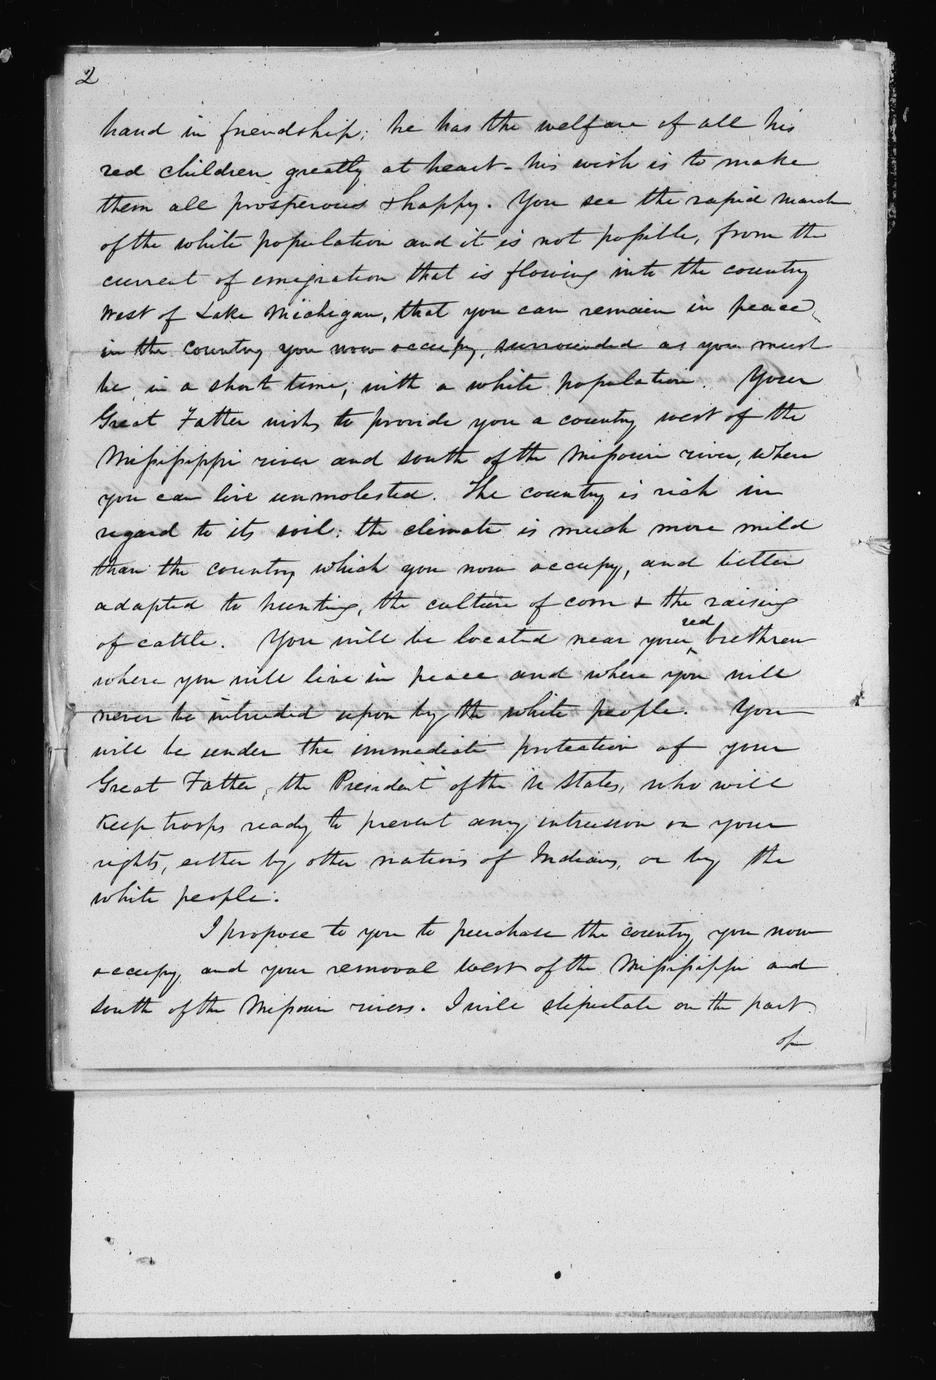 2
hand in friendship; he has the welfare of all his
red children greatly at heart - his wish is to make
them all prosperous & happy. You see the rapid march
of the white population and it is not possible, from the
current of emigration that is flowing into the country
West of Lake Michigan, that you can remain in peace,
in the country you now occupy, surrounded as you must
be, in a short time, with a white population. Your
Great Father wish, to provide you a country west of the
Mississippi river and south of the Missouri river, where
you can live unmolested. The country is rich in
regard to its soil: the climate is much more mild
than the country which you now occupy, and better
adapted to hunting, the culture of corn & the raising
of cattle. You will be located near your red brethren
where you will live in peace and where you will
never be intruded upon by the white people. You
will be under the immediate protection of your
Great Father, the President of the U States, who will
keep troops ready to prevent any intrusion on your
rights, either by other nations of Indians, or by the
white people.
I propose to you to purchase the country you now
occupy, and your removal west of the Mississippi and
south of the Missouri rivers. I will stipulate on the part
of